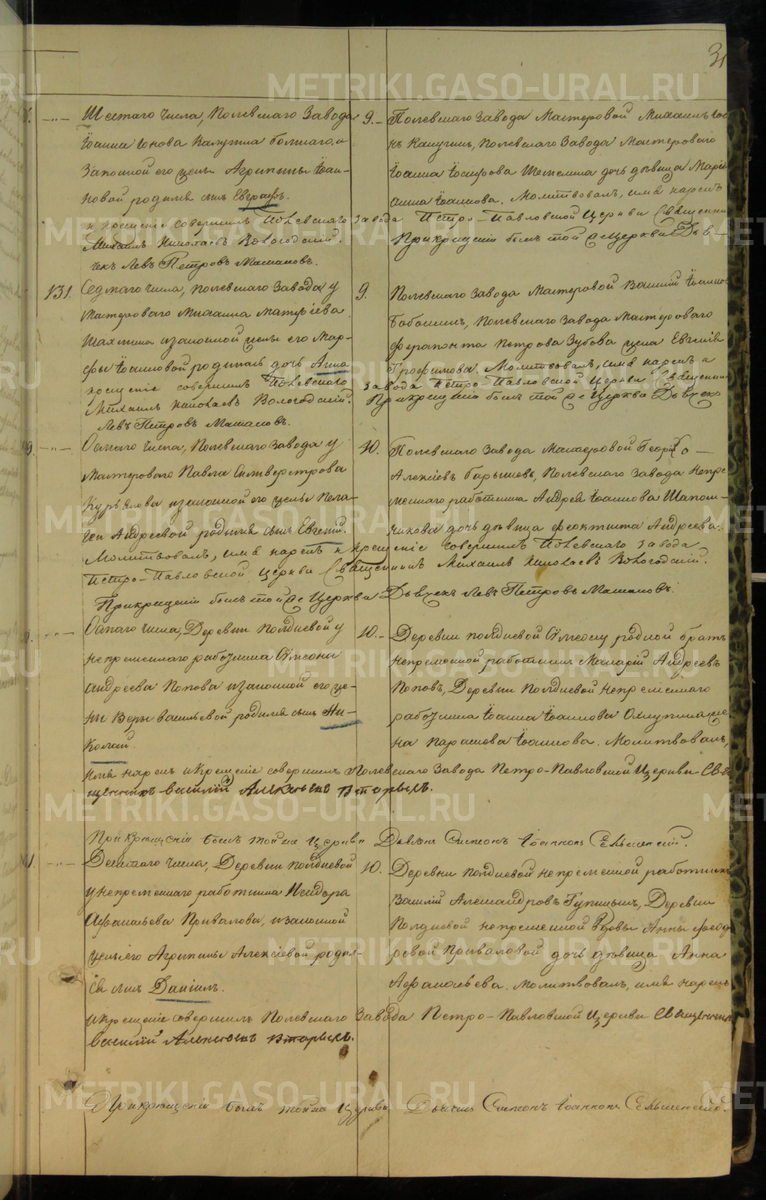 31
Шестаго числа, Полевскаго Завода
Іоанна Іонова
законной его жены Агрипины Іоан-
новой родился сынъ
9. Полевскаго Завода Мастеровой Михаилъ
Полевскаго Завода Мастероваго
Іоанна дочь дѣвица Марія
Іоаннова. Молитвовалъ, имя нарекъ
и крещеніе совершилъ Полевскаго завода Петро-Павловской Церкви Священникъ
Михаилъ Николаевъ Вологодскій.
При крещеніи былъ той же Церкви Дья-
чекъ Левъ Петровъ
131. Седьмаго числа, Полевскаго Завода у
Мастероваго Михаила Матвѣева
Шахтина и законной жены его Мар-
фы Іоанновой родилась дочь Анна
9. Полевскаго Завода Мастеровой Василій
Бабошинъ, Полевскаго Завода Мастероваго
Ферапонта Петрова Зубова жена Евгенія
Трофимова. Молитвовалъ, имя нарекъ и
крещеніе совершилъ Полевскаго завода Петро-Павловской Церкви Священникъ
Михаилъ Николаевъ Вологодскій.
При крещеніи былъ той же Церкви Дьячекъ
Левъ Петровъ
Осмаго числа, Полевскаго Завода у
Мастероваго Павла Силверстрова
и законной его жены Пела-
геи Андреевой родился сынъ Евгеній.
10. Полевскаго Завода Мастеровой Георгій
Алексѣевъ Барышевъ, Полевскаго Завода Непре-
меннаго работника Андрея Іоаннова Шапош-
никова дочь дѣвица Феоктиста Андреева.
Молитвовалъ, имя нарекъ и крещеніе совершилъ Полевскаго завода
Петро-Павловской церкви Священникъ Михаилъ Николаевъ Вологодскій.
При крещеніи былъ той же Церкви Дьячекъ Левъ Петровъ
Осмаго числа, Деревни Полдневой у
непременнаго работника Симеона
Андреева Попова и законной его же-
ны Веры Васильевой родился сынъ Ни-
колай.
10. Деревни Полдневой Симеону родной братъ
непременной работникъ Макарій Андреевъ
Поповъ, Деревни Полдневой непременнаго
работника Іоанна Іоаннова же-
на Параскова Іоаннова. Молитвовалъ,
имя нарекъ и Крещеніе совершилъ Полевскаго Завода Петро-Павловской Церкви Св-
ященникъ Василій Алексѣевъ Вторыхъ.
При крещеніи былъ той же Церкви Дьячекъ Симеонъ Іоанновъ
Десятаго числа, Деревни Полдневой
у непременнаго работника Исидора
Афанасьева Привалова, и законной
жены его Агрипины Алексѣевой роди-
ся сынъ Даніилъ.
10. Деревни Полдневой непременной работникъ
Василій Александровъ Деревни
Полдневой непременной Вдовы Анны Феодо-
ровой Приваловой дочь дѣвица Анна
Афанасьева. Молитвовалъ, имя нарекъ
и крещеніе совершилъ Полевскаго Завода Петро-Павловской Церкви Священникъ
Василій Алексѣевъ Вторыхъ.
При крещеніи былъ той же Церкви Дьячекъ Симеонъ Іоанновъ
METRIKI.GASO-URAL.RU